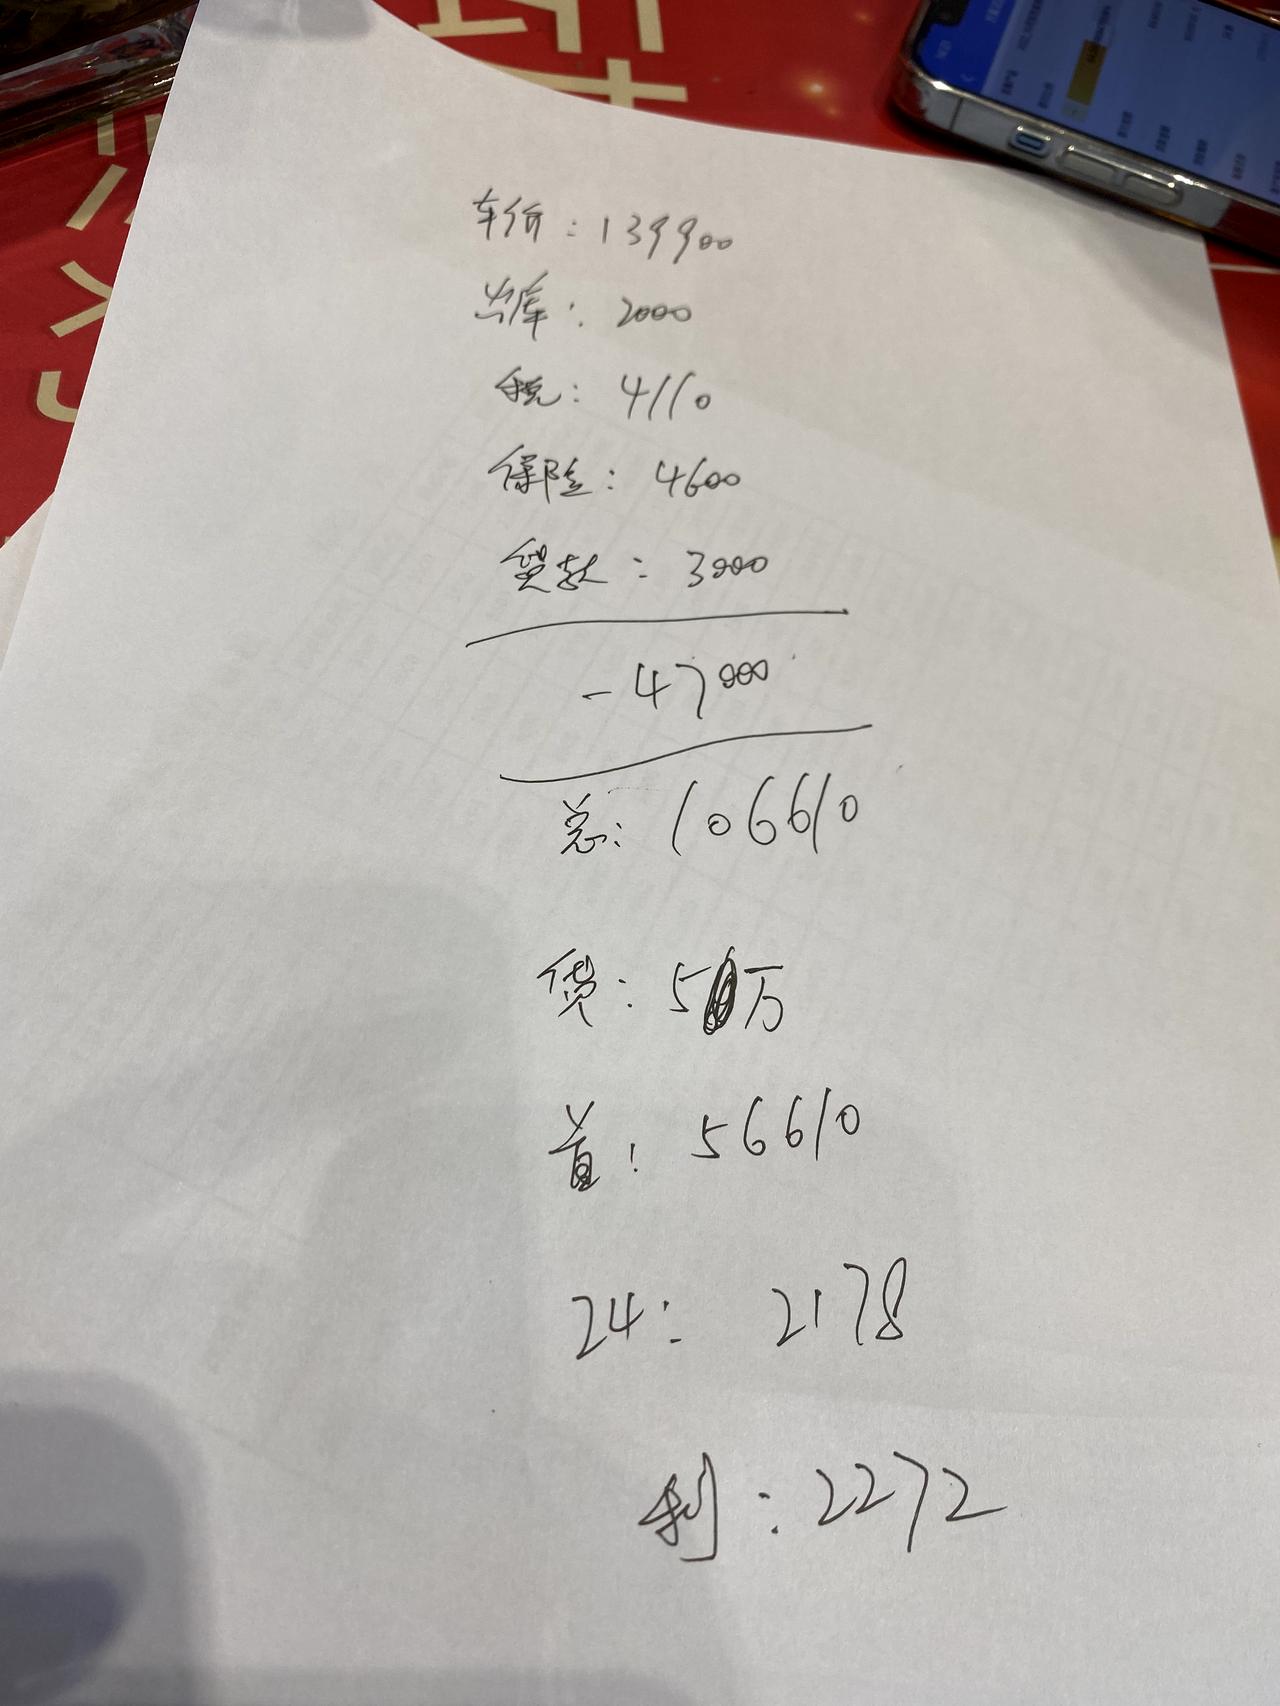 车价：139900
出库：2000
税：4110
保险：4600
贷款：3000
-47000
总：106610
贷：5万
首：56610
24：2178
利：2272